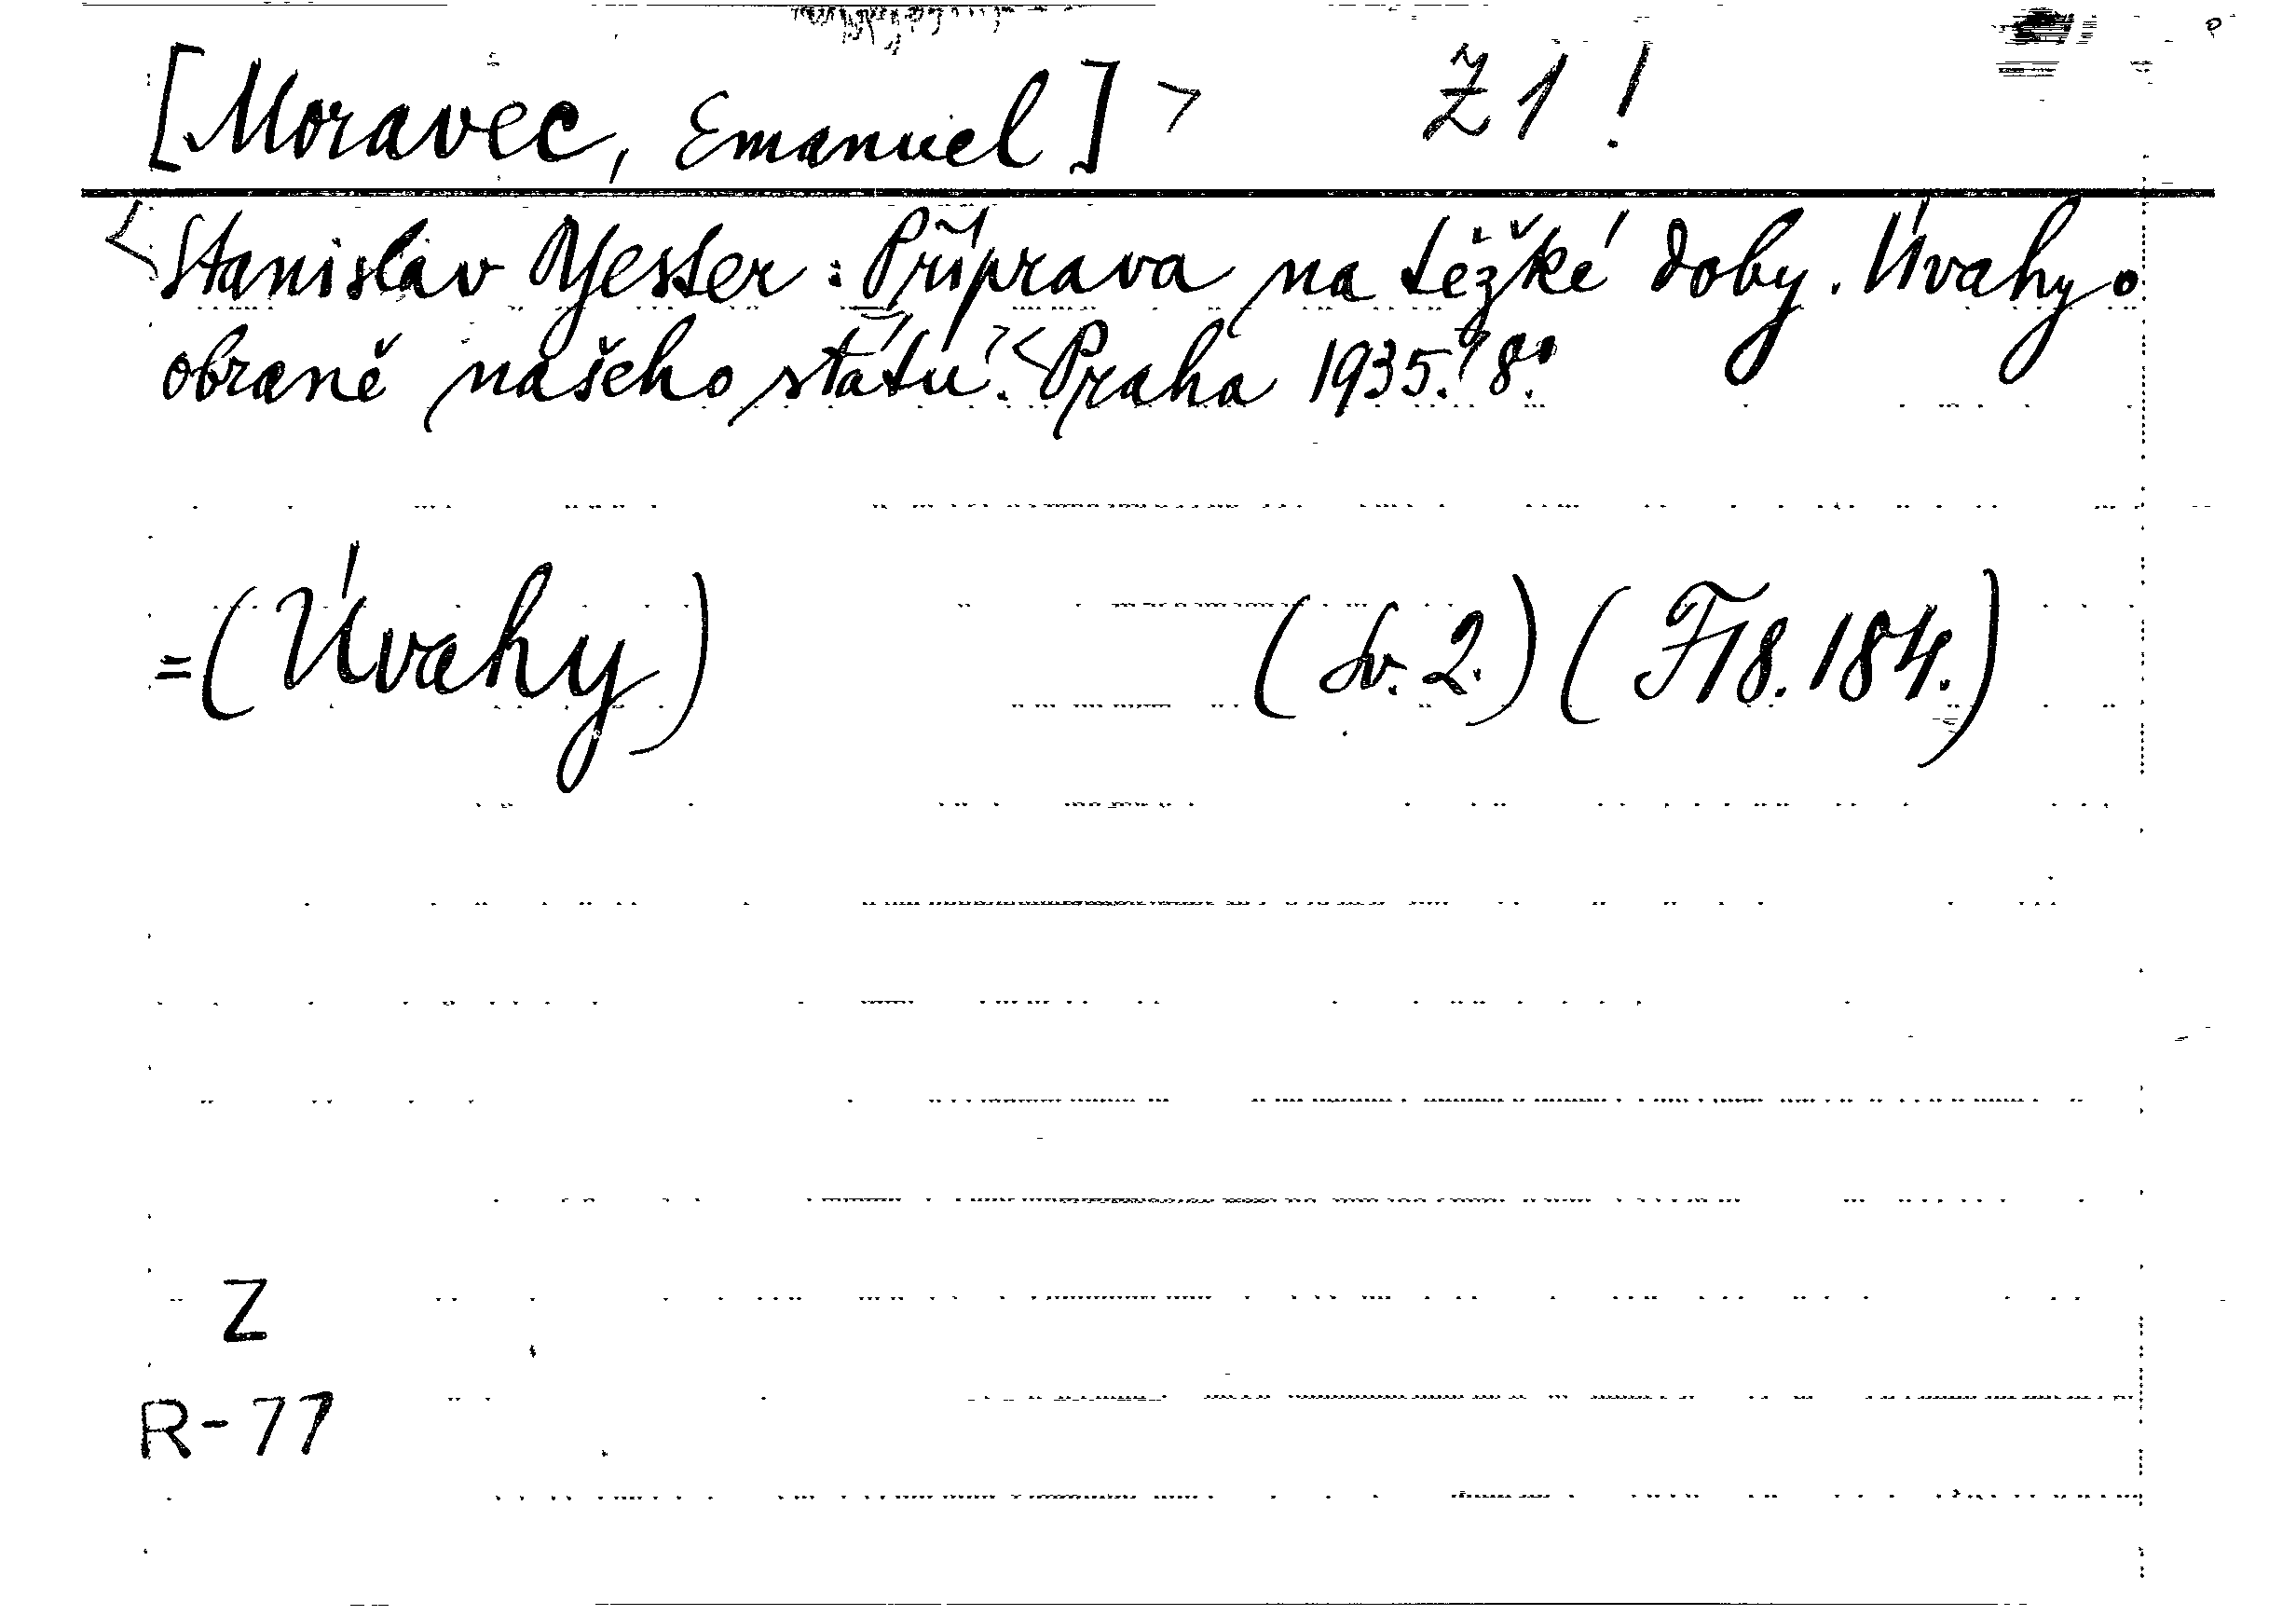 [Moravec, Emanuel] > Ž 1 !
<Stanislav Yester: Příprava na těžké doby. Úvahy o
obraně našeho státu.> <Praha 1935.> 8°.
=(Úvahy) (Sv. 2.) (F 18.184.)
Z
R-77